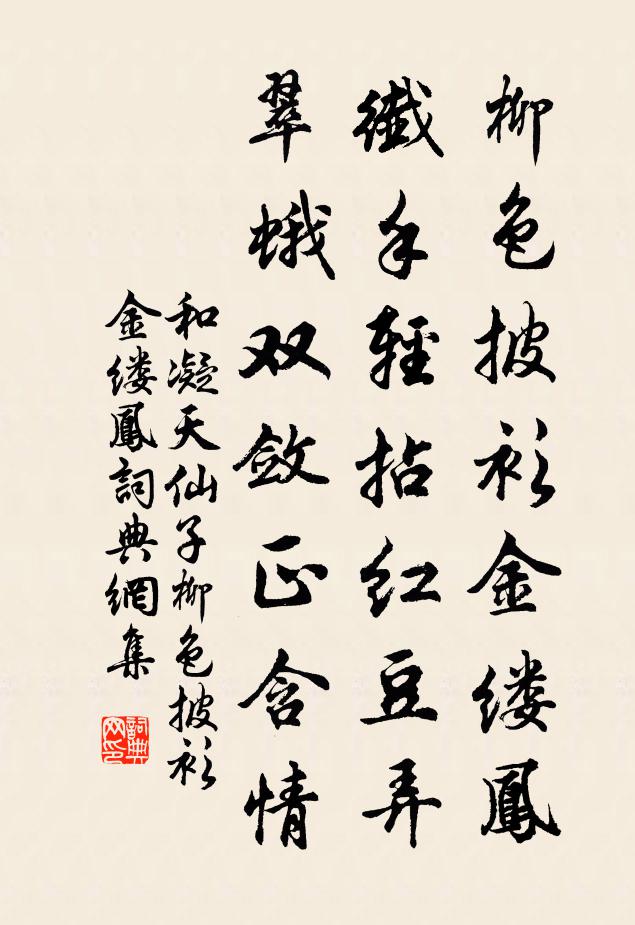 柳色披衫金缕鳳
纖手輕拈红豆弄
翠蛾双敛正含情
和凝天仙子柳色披衫
金缕鳳詞典網集
詞典网印